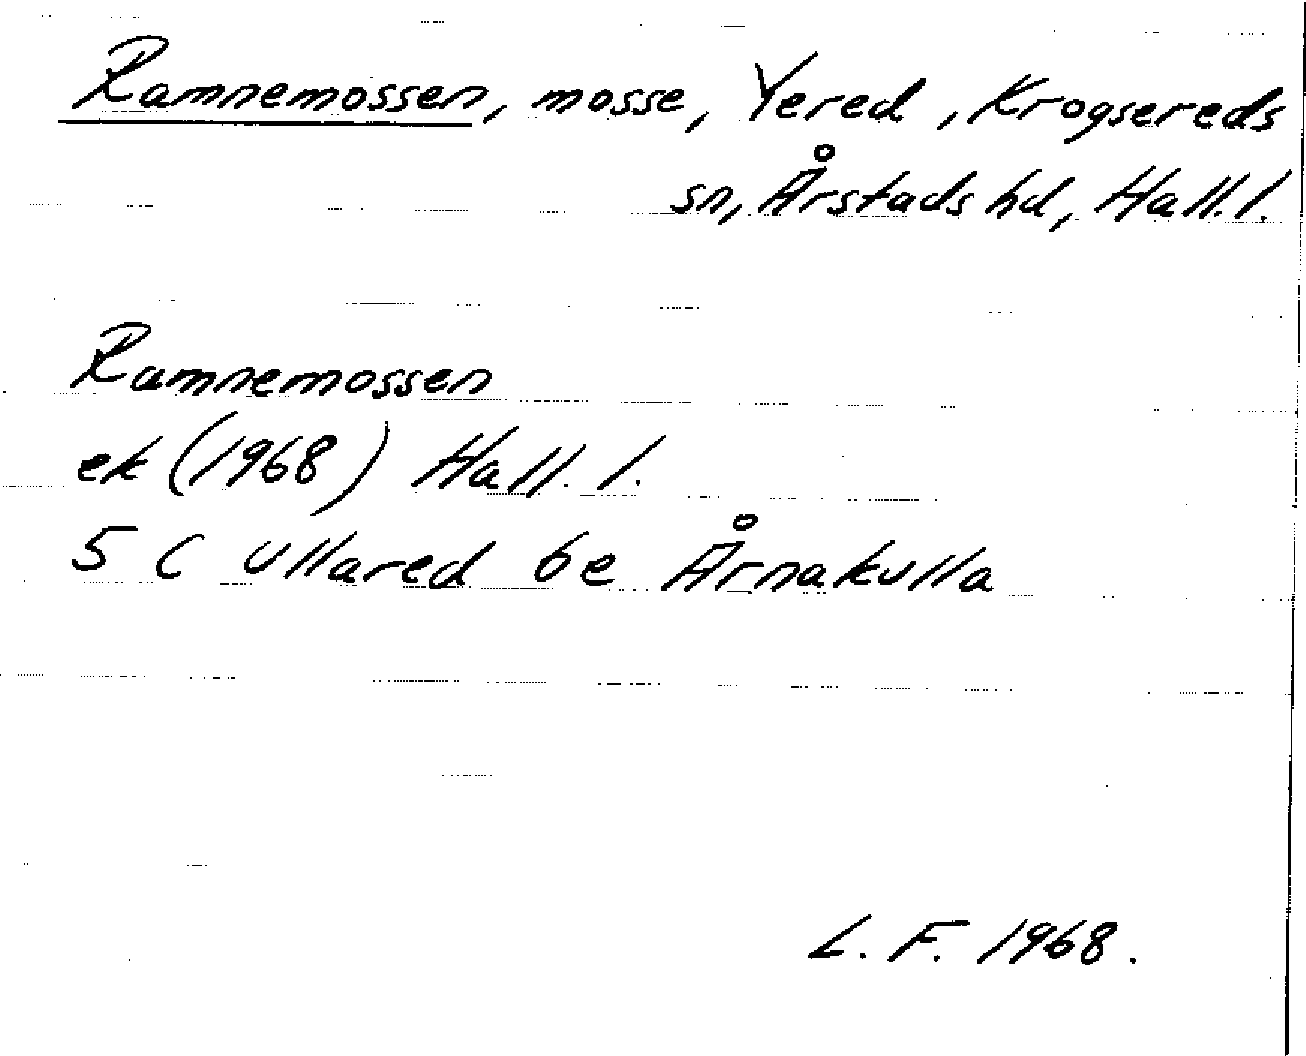 Ramnemossen, mosse, Yered, Krogsereds
sn, Årstads hd, Hall. l.
Ramnemossen
ek (1968) Hall. l.
5 C Ullared 6e Årnakulla
L. F. 1968.